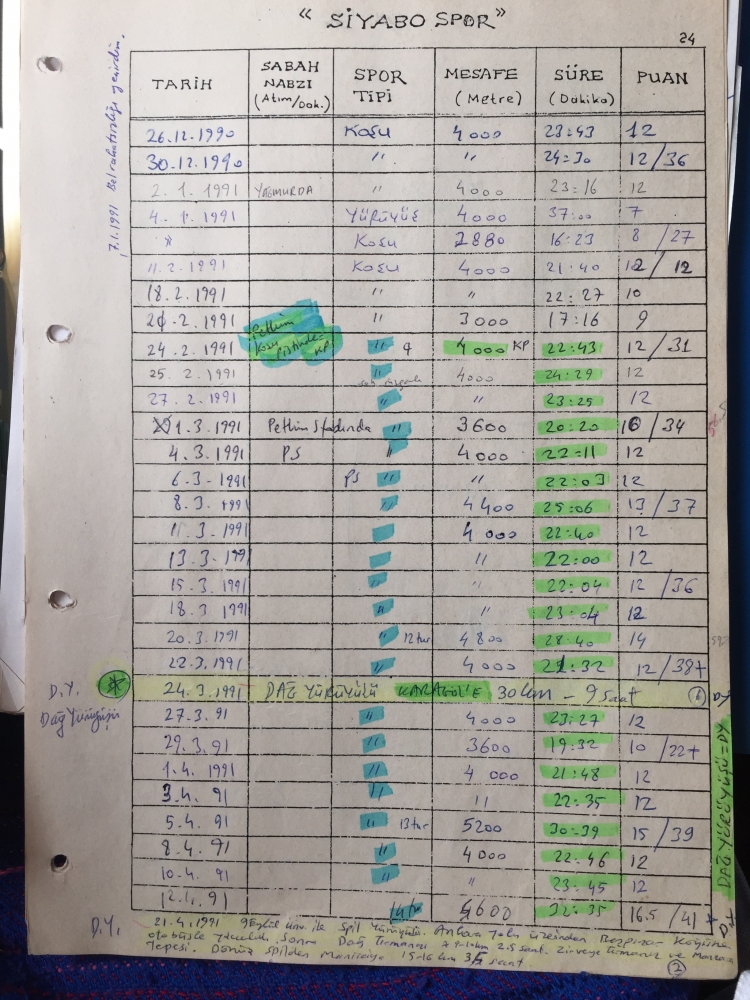 " SİYABO SPOR "
24
TARİH SABAH NABZI (Atım/Dak.) SPOR TİPİ MESAFE (Metre) SÜRE (Dakika) PUAN
26.12.1990 KOŞU 4000 23:43 12
30.12.1990 " " 24:30 12/36
2.1.1991 YAĞMURDA " 4000 23:16 12
4.1.1991 YÜRÜYÜŞ 4000 37:00 7
" KOŞU 2880 16:23 8/27
11.2.1991 KOŞU 4000 21:40 12/12
18.2.1991 " " 22:27 10
2.1991 " 3000 17:16 9
24.2.1991 Petkim Koşu Pistinde KP " 4000 KP 22:43 12/31
25.2.1991 " 4000 24:29 12
27.2.1991 " " 23:25 12
1.3.1991 Petkim Stadında " 3600 20:20 10/34
4.3.1991 PS " 4000 22:11 12
6.3.1991 PS " " 22:03 12
8.3.1991 " 4400 25:06 13/37
11.3.1991 " 4000 22:40 12
13.3.1991 " " 22:00 12
15.3.1991 " " 22:04 12/36
18.3.1991 " " 23:04 12
20.3.1991 " 12 tur 4800 28:40 14
22.3.1991 " 4000 21:32 12/38+
D.Y. * 24.3.1991 DAĞ YÜRÜYÜŞÜ KARAGÖL'E 30 km - 9 saat (1)
Dağ Yürüyüşü
27.3.91 " 4000 23:27 12
29.3.91 " 3600 19:32 10/22+
1.4.1991 " 4000 21:48 12
3.4.91 " " 22:35 12
5.4.91 " 13 tur 5200 30:39 15/39
8.4.91 " 4000 22:46 12
10.4.91 " " 23:45 12
12.4.91 14 tur 5600 32:35 16.5/41+
D.Y. 21.4.1991 9 Eylül Ünv. ile Spil Yürüyüşü. Ankara yolu üzerinden Köyüne
otobüsle Sonra Dağ Tırmanışı 2.5 saat. Zirveye tırmanış ve Manzara
Tepesi. Dönüş Spilden Manisaya 15-16 km saat. (2)
7.1.1991 Bel rahatsızlığı
DAĞ YÜRÜYÜŞÜ = DY